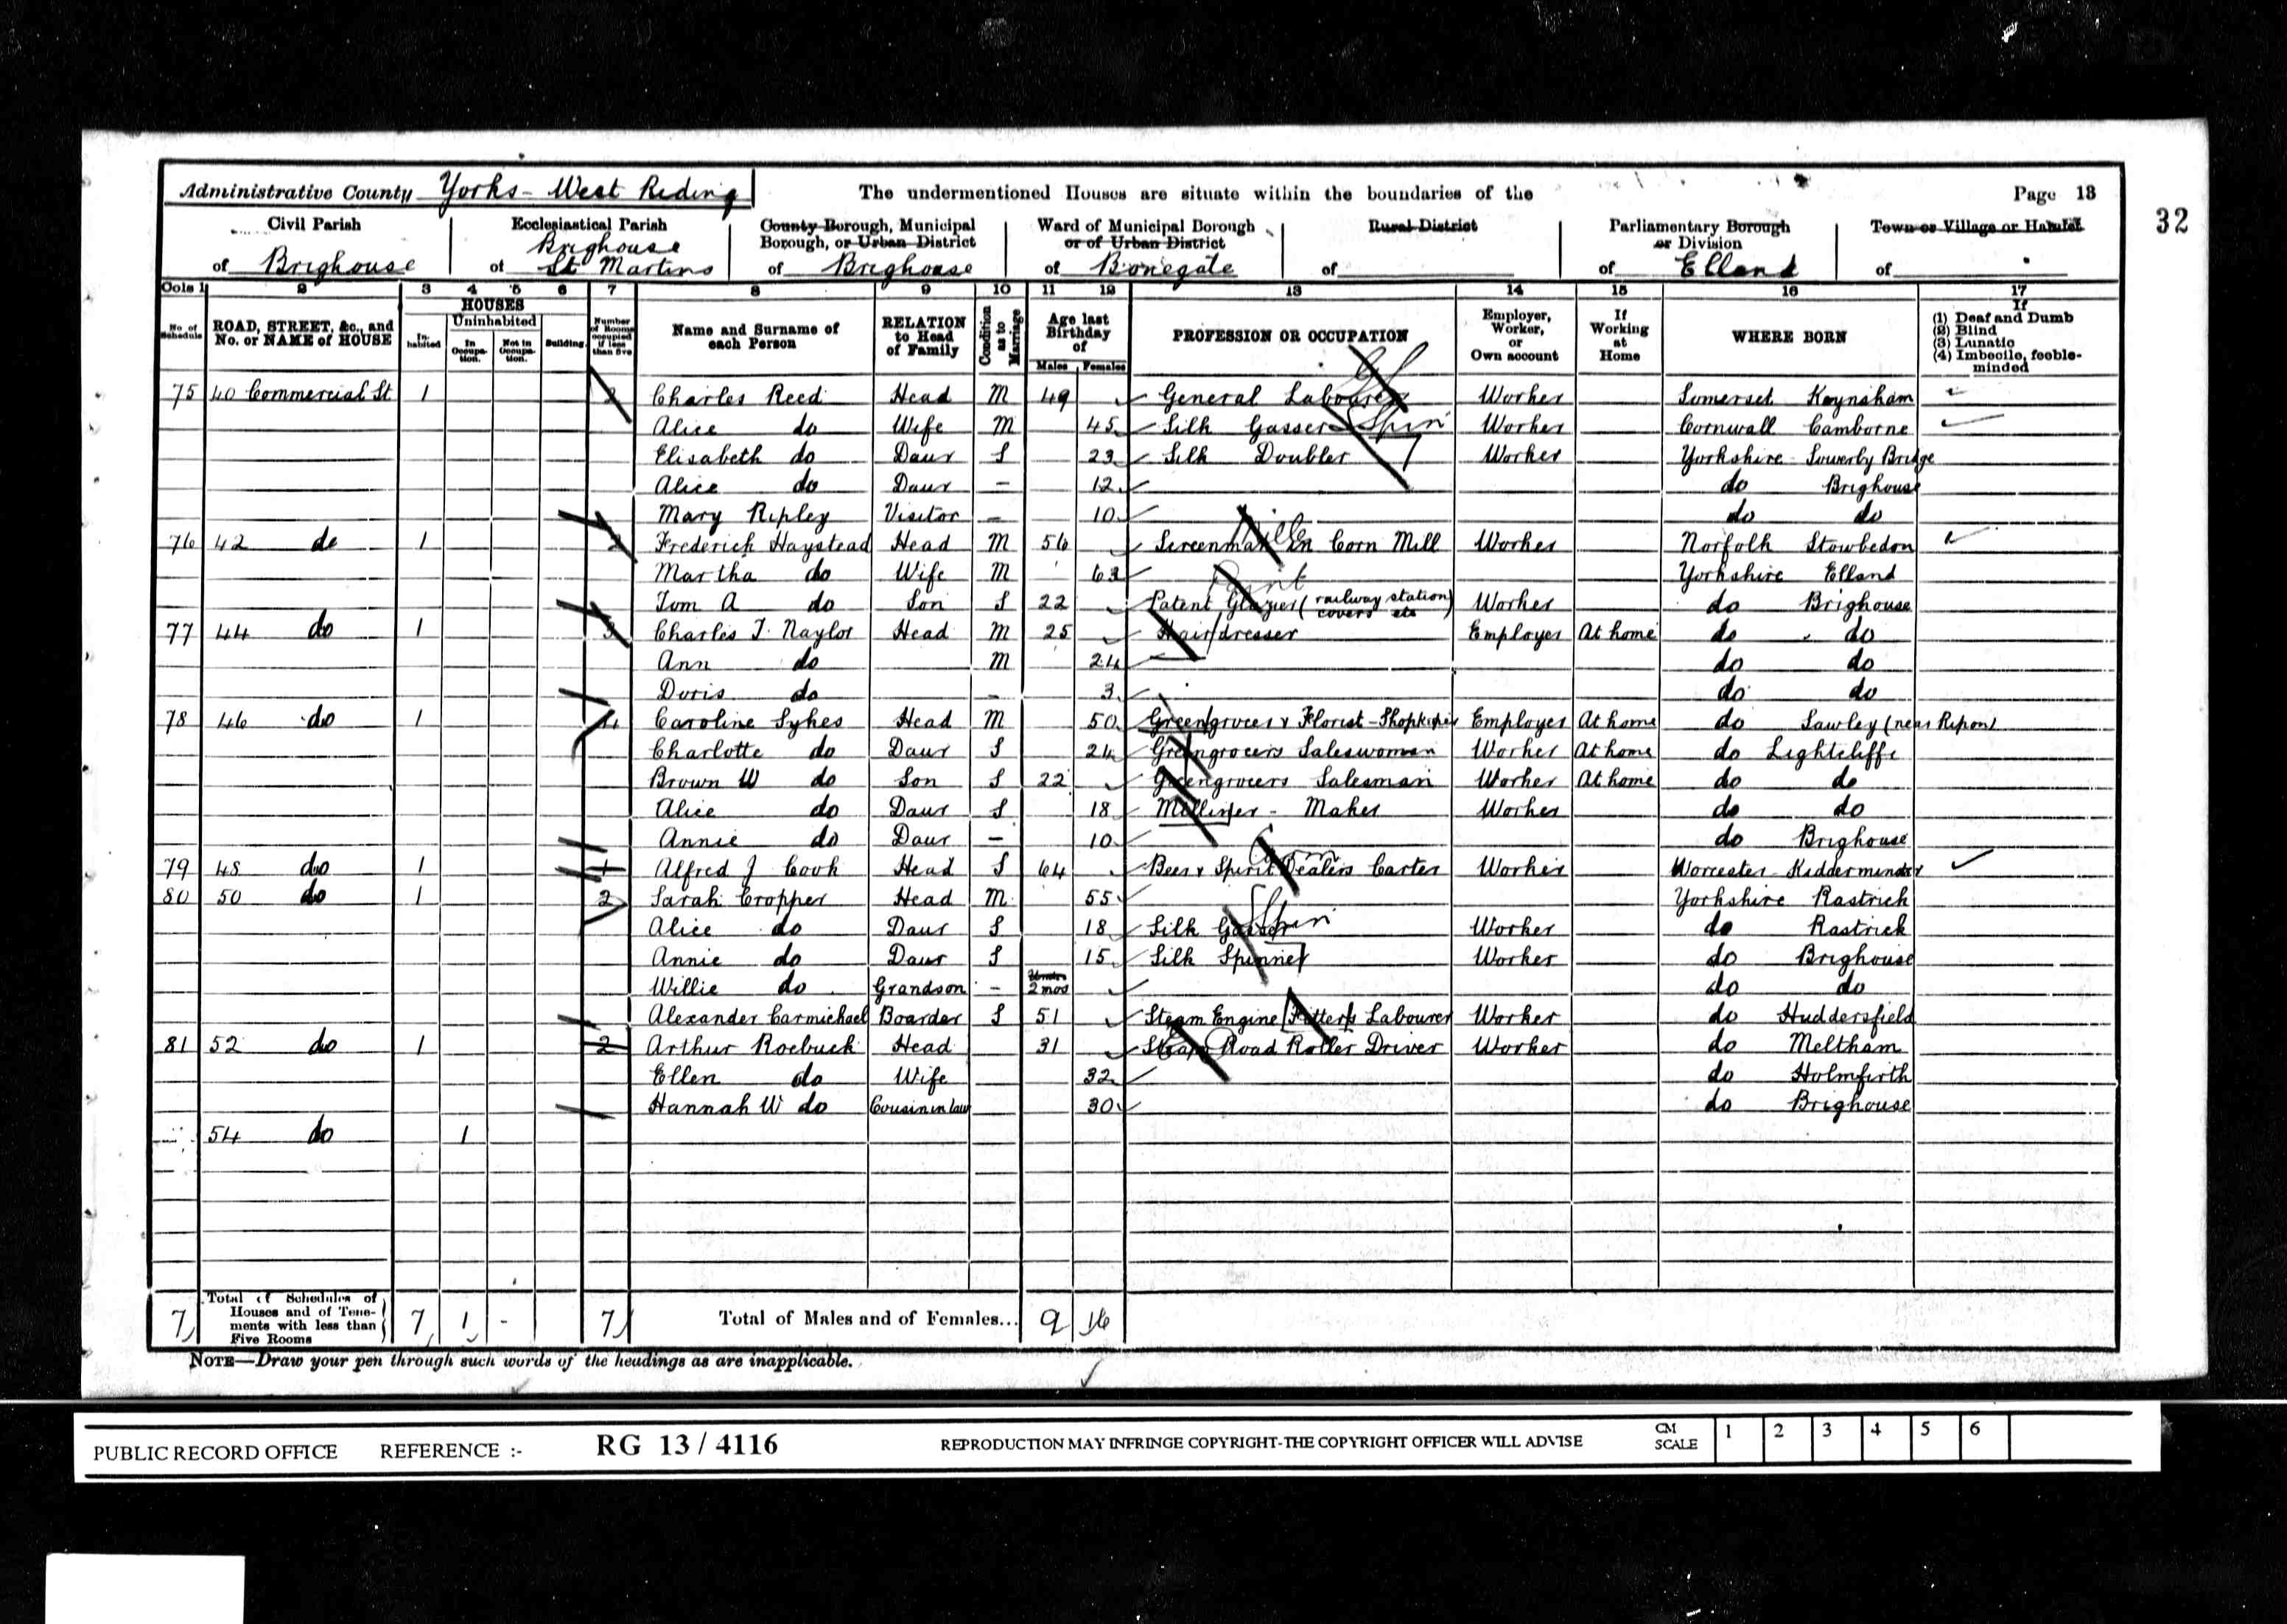 Administrative County Yorks - West Riding The undermentioned Houses are situate within the boundaries of the Page 13
32
Civil Parish of Brighouse
Ecclesiastical Parish of Brighouse St Martins
County Borough, Municipal Borough, or Urban District of Brighouse
Ward of Municipal Borough or of Urban District of Bonegate
Rural District of
Parliamentary Borough or Division of Elland
Town or Village or Hamlet of
Cols 1 2 3 4 5 6 7 8 9 10 11 12 13 14 15 16 17
No. of Schedule
ROAD, STREET, &c., and No. or NAME of HOUSE
HOUSES
In-habited
Uninhabited
In Occupa-tion.
Not in Occupa-tion.
Building.
Number of Rooms occupied if less than five
Name and Surname of each Person
RELATION to Head of Family
Condition as to Marriage
Age last Birthday of
Males Females
PROFESSION OR OCCUPATION
Employer, Worker, or Own account
If Working at Home
WHERE BORN
If
(1) Deaf and Dumb
(2) Blind
(3) Lunatic
(4) Imbecile, feeble-minded
75 40 Commercial St 1 2 Charles Reed Head M 49 General Labourer Worker Somerset Keynsham
Alice do Wife M 45 Silk Gasser Spin Worker Cornwall Camborne
Elisabeth do Daur S 23 Silk Doubler Worker Yorkshire Sowerby Bridge
Alice do Daur - 12 do Brighouse
Mary Ripley Visitor - 10 do do
76 42 do 1 2 Frederick Haystead Head M 56 Screenman in Corn Mill Worker Norfolk Stowbedon
Martha do Wife M 63 Yorkshire Elland
Tom A do Son S 22 Patent Glazier (railway station covers etc) Worker do Brighouse
77 44 do 1 3 Charles T. Naylor Head M 25 Hairdresser Employer At home do do
Ann do M 24 do do
Doris do - 3 do do
78 46 do 1 4 Caroline Sykes Head M 50 Greengrocer & Florist - Shopkeeper Employer At home do Sawley (near Ripon)
Charlotte do Daur S 24 Greengrocers Saleswoman Worker At home do Lightcliffe
Brown W do Son S 22 Greengrocers Salesman Worker At home do do
Alice do Daur S 18 Milliner - Maker Worker do do
Annie do Daur - 10 do Brighouse
79 48 do 1 1 Alfred J Cook Head S 64 Beer & Spirit Dealers Carter Worker Worcester Kidderminster
80 50 do 1 2 Sarah Cropper Head M 55 Yorkshire Rastrick
Alice do Daur S 18 Silk Gasser Spin Worker do Rastrick
Annie do Daur S 15 Silk Spinner Worker do Brighouse
Willie do Grandson - 2 mos do do
Alexander Carmichael Boarder S 51 Steam Engine Fitters Labourer Worker do Huddersfield
81 52 do 1 2 Arthur Roebuck Head 31 Steam Road Roller Driver Worker do Meltham
Ellen do Wife 32 do Holmfirth
Hannah W do Cousin in law 30 do Brighouse
54 do 1
7 Total of Schedules of Houses and of Tene-ments with less than Five Rooms 7 1 - 7 Total of Males and of Females... 9 16
NOTE—Draw your pen through such words of the headings as are inapplicable.
PUBLIC RECORD OFFICE REFERENCE :- RG 13 / 4116 REPRODUCTION MAY INFRINGE COPYRIGHT-THE COPYRIGHT OFFICER WILL ADVISE CM SCALE 1 2 3 4 5 6